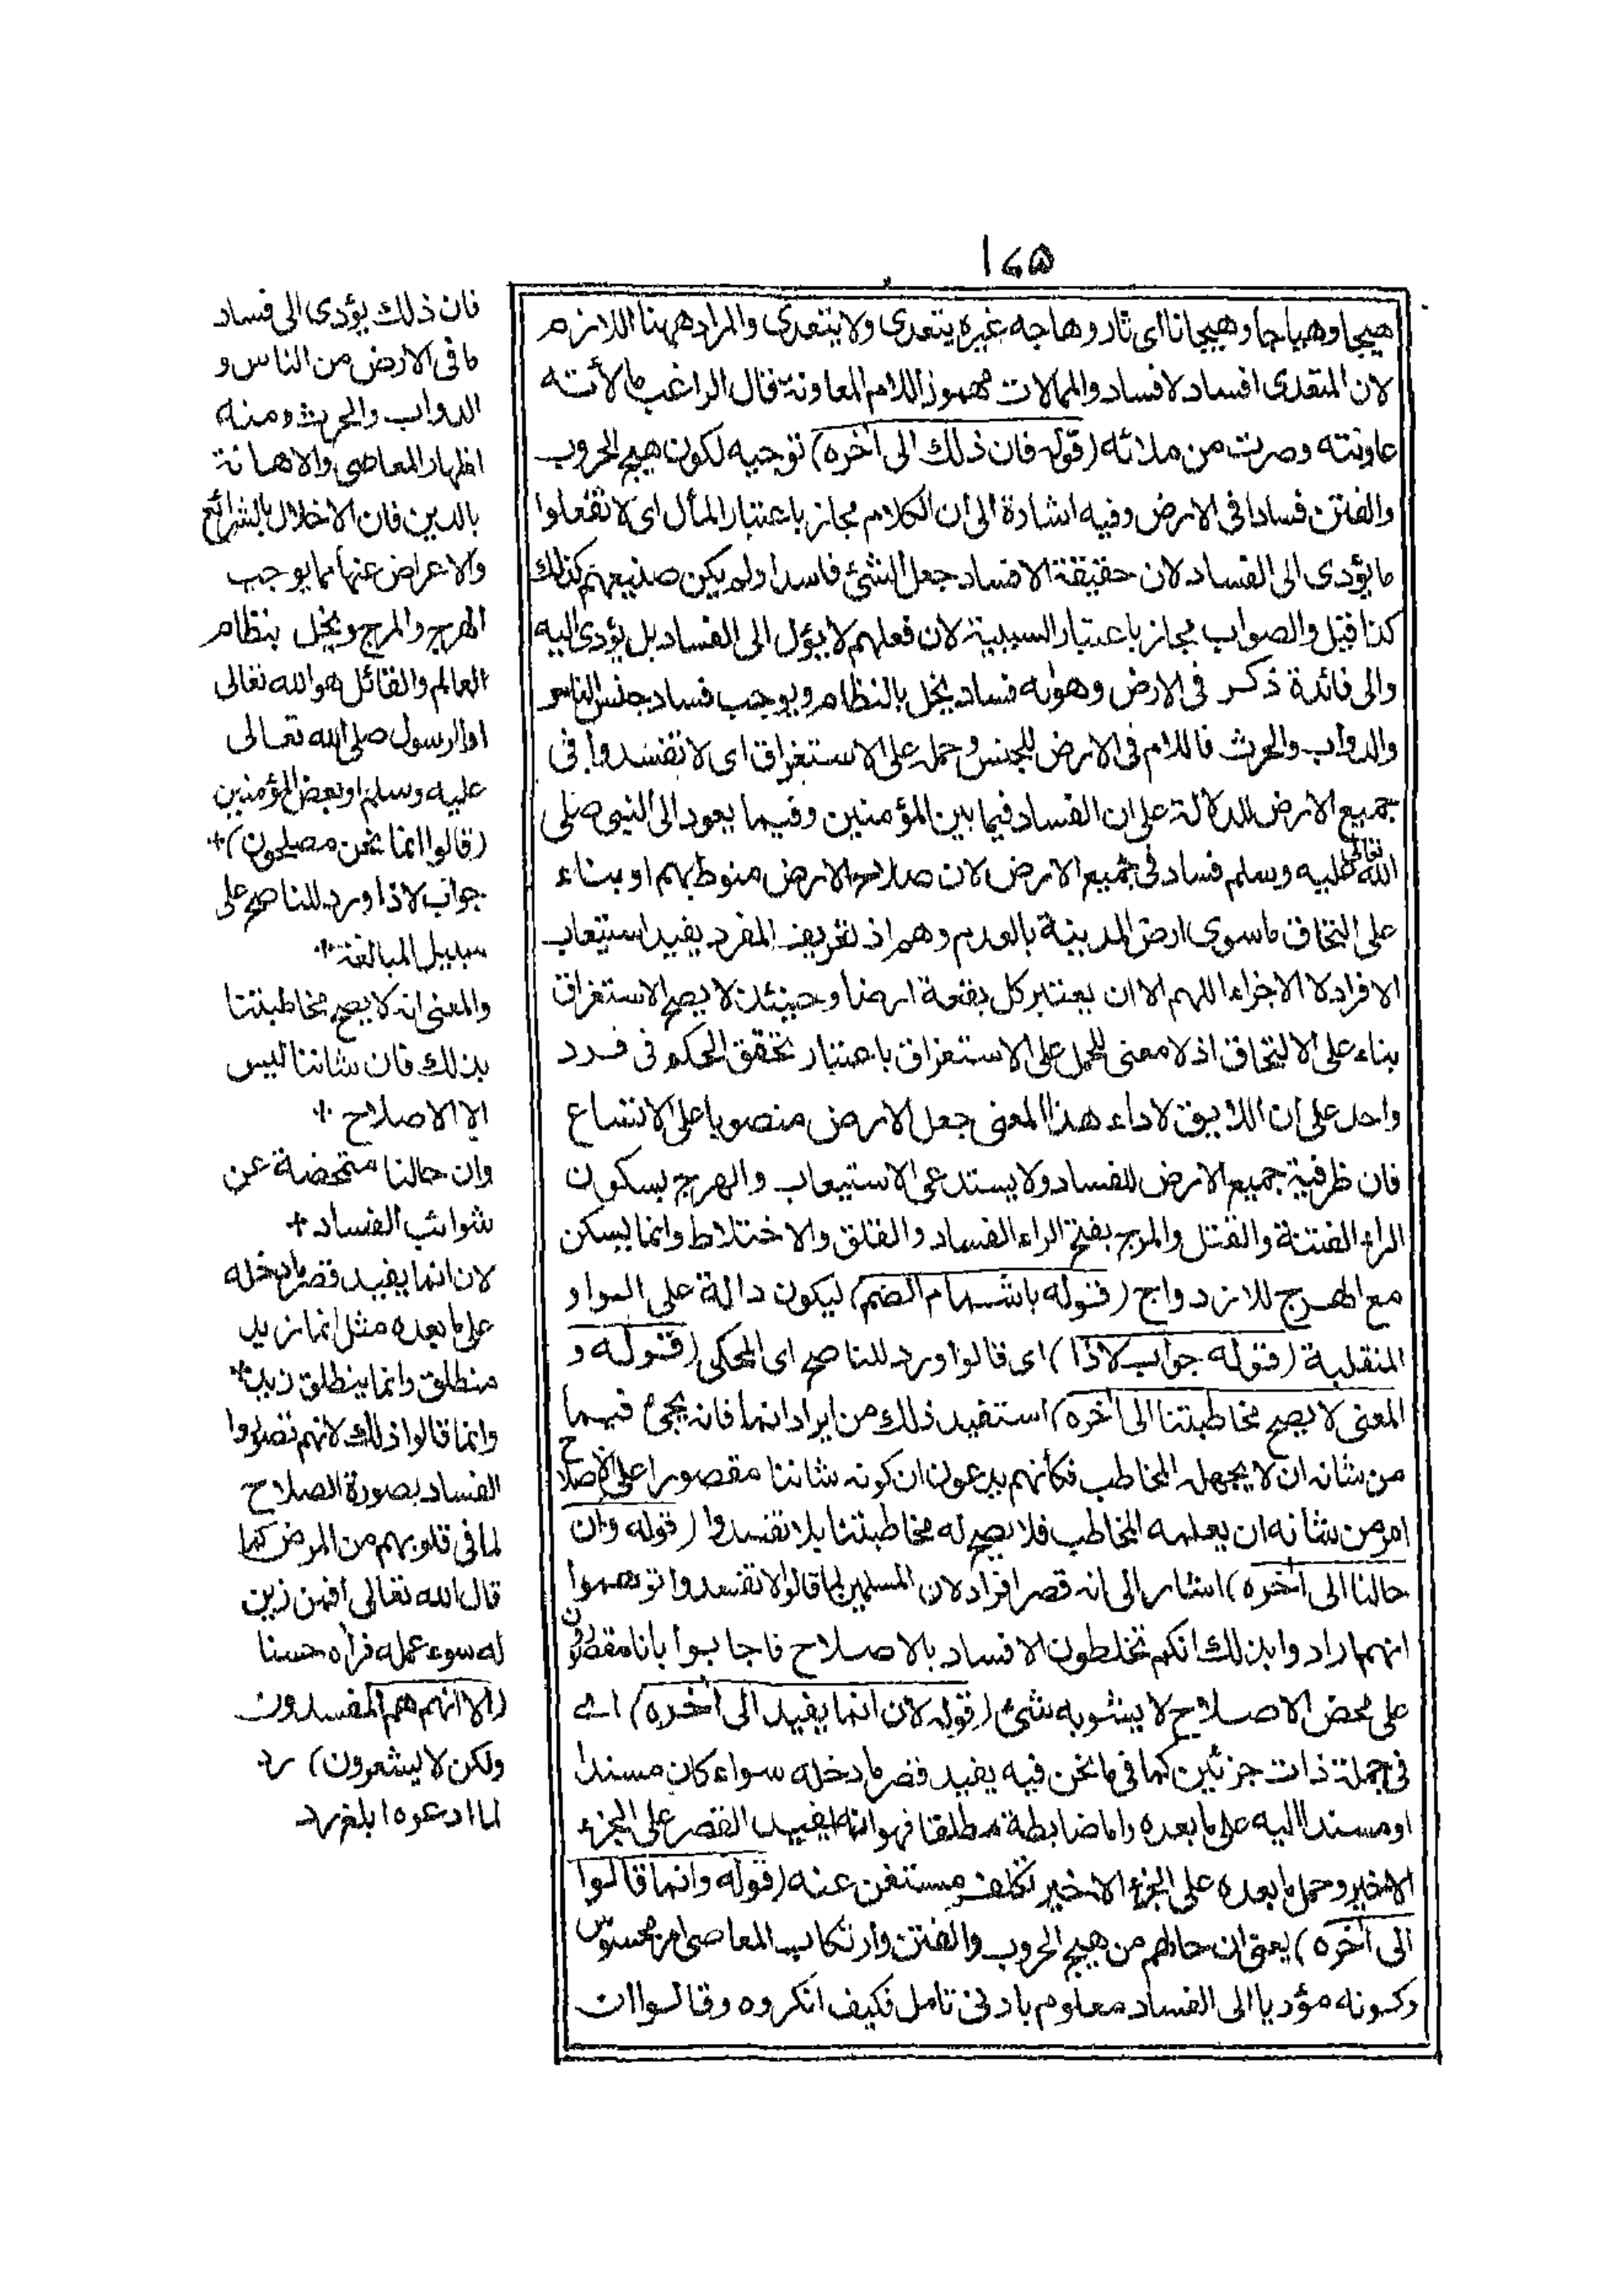 ١٦٥
هيجا وهياجا وهيجانا اى ثار وهاجه غيره يتعدى ولا يتعدى والمراد ههنا اللازم
لان المتعدى افساد لا فساد والممالات مهموز اللام المعاونة قال الراغب مالأته
عاونته وصرت من ملائه (قوله فان ذلك الى آخره) توجيه لكون هيج الحروب
والفتن فسادا فى الارض وفيه اشارة الى ان الكلام مجاز باعتبار المأل اى لا تفعلوا
ما يؤدى الى الفساد لان حقيقة الافساد جعل الشئ فاسدا ولم يكن صنيعهم كذلك
كذا قيل والصواب مجاز باعتبار السببية لان فعلهم لا يؤل الى الفساد بل يؤدى اليه
والى فائدة ذكر فى الارض وهو انه فساد يخل بالنظام ويوجب فساد جنس الناس
والدواب والحرث فاللام فى الارض للجنس وحمله على الاستغراق اى لا تفسدوا فى
جميع الارض للدلالة على ان الفساد فيما بين المؤمنين وفيما يعود الى النبى صلى
الله تعالى عليه وسلم فساد فى جميع الارض لان صلاح الارض منوط بهم او بناء
على التحاق ماسوى ارض المدينة بالعدم وهم اذ تعريف المفرد يفيد استيعاب
الافراد لا الاجزاء اللهم الا ان يعتبر كل بقعة ارضا وحينئذ لا يصح الاستغراق
بناء على الالتحاق اذ لا معنى للحمل على الاستغراق باعتبار تحقق الحكم فى فرد
واحد على ان اللايق لاداء هذا المعنى جعل الارض منصوبا على الاتساع
فان ظرفية جميع الارض للفساد ولا يستدعى الاستيعاب والهرج بسكون
الراء الفتنة والقتل والمرج بفتح الراء الفساد والقلق والاختلاط وانما يسكن
مع الهرج للازدواج (قوله باشمام الضم) ليكون دالة على الواو
المنقلبة (قوله جواب لاذا) اى قالوا ورد للناصح اى المحكى (قوله و
المعنى لا يصح مخاطبتنا الى آخره) استفيد ذلك من ايراد انما فانه يجئ فيما
من شانه ان لا يجهله المخاطب فكأنهم يدعون ان كونه شاننا مقصورا على الاصلاح
امر من شانه ان يعلمه المخاطب فلا يصح له مخاطبتنا بلا تفسدوا (قوله وان
حالنا الى آخره) اشار الى انه قصر افراد لان المسلمين لما قالوا لا تفسدوا توهموا
انهم ارادوا بذلك انكم تخلطون الافساد بالاصلاح فاجابوا بانا مقصورون
على محض الاصلاح لا يشوبه شئ (قوله لان انما يفيد الى آخره) اے
فى جملة ذات جزئين كما فى ما نحن فيه يفيد قصر ما دخله سواء كان مسندا
او مسندا اليه على ما بعده واما ضابطة مطلقا فهو انها يفيد القصر على الجزء
الاخير وحمل ما بعده على الجزء الاخير تكلف مستغن عنه (قوله وانما قالوا
الى آخره) يعنى ان حالهم من هيج الحروب والفتن وارتكاب المعاصى امر محسوس
وكونه مؤديا الى الفساد معلوم بادنى تامل فكيف انكروه وقالوا ان
فان ذلك يؤدى الى فساد
ما فى الارض من الناس و
الدواب والحرث ومنه
اظهار المعاصى والاهانة
بالدين فان الاخلال بالشرائع
والاعراض عنها مما يوجب
الهرج والمرج ويخل بنظام
العالم والقائل هو الله تعالى
او الرسول صلى الله تعالى
عليه وسلم او بعض المؤمنين
(قالوا انما نحن مصلحون)+
جواب لاذا ورد للناصح على
سبيل المبالغة+
والمعنى انه لا يصح مخاطبتنا
بذلك فان شاننا ليس
الا الاصلاح +
وان حالنا متمحضة عن
شوائب الفساد +
لان انما يفيد قصر ما دخله
على ما بعده مثل انما زيد
منطلق وانما ينطلق زيد+
وانما قالوا ذلك لانهم تصوروا
الفساد بصورة الصلاح
لما فى قلوبهم من المرض كما
قال الله تعالى افمن زين
له سوء عمله فرآه حسنا
(الا انهم هم المفسدون
ولكن لا يشعرون) رد
لما ادعوه ابلغ رد